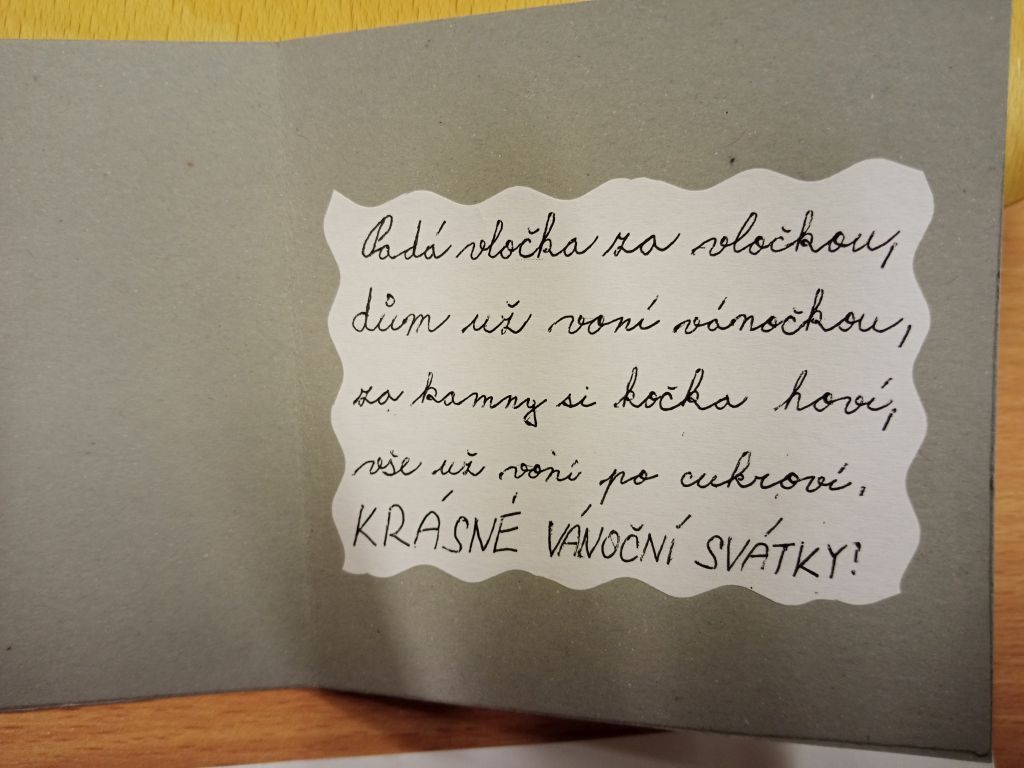 Padá vločka za vločkou,
dům už voní vánočkou,
za kamny si kočka hoví,
vše už voní po cukroví,
KRÁSNÉ VÁNOČNÍ SVÁTKY!